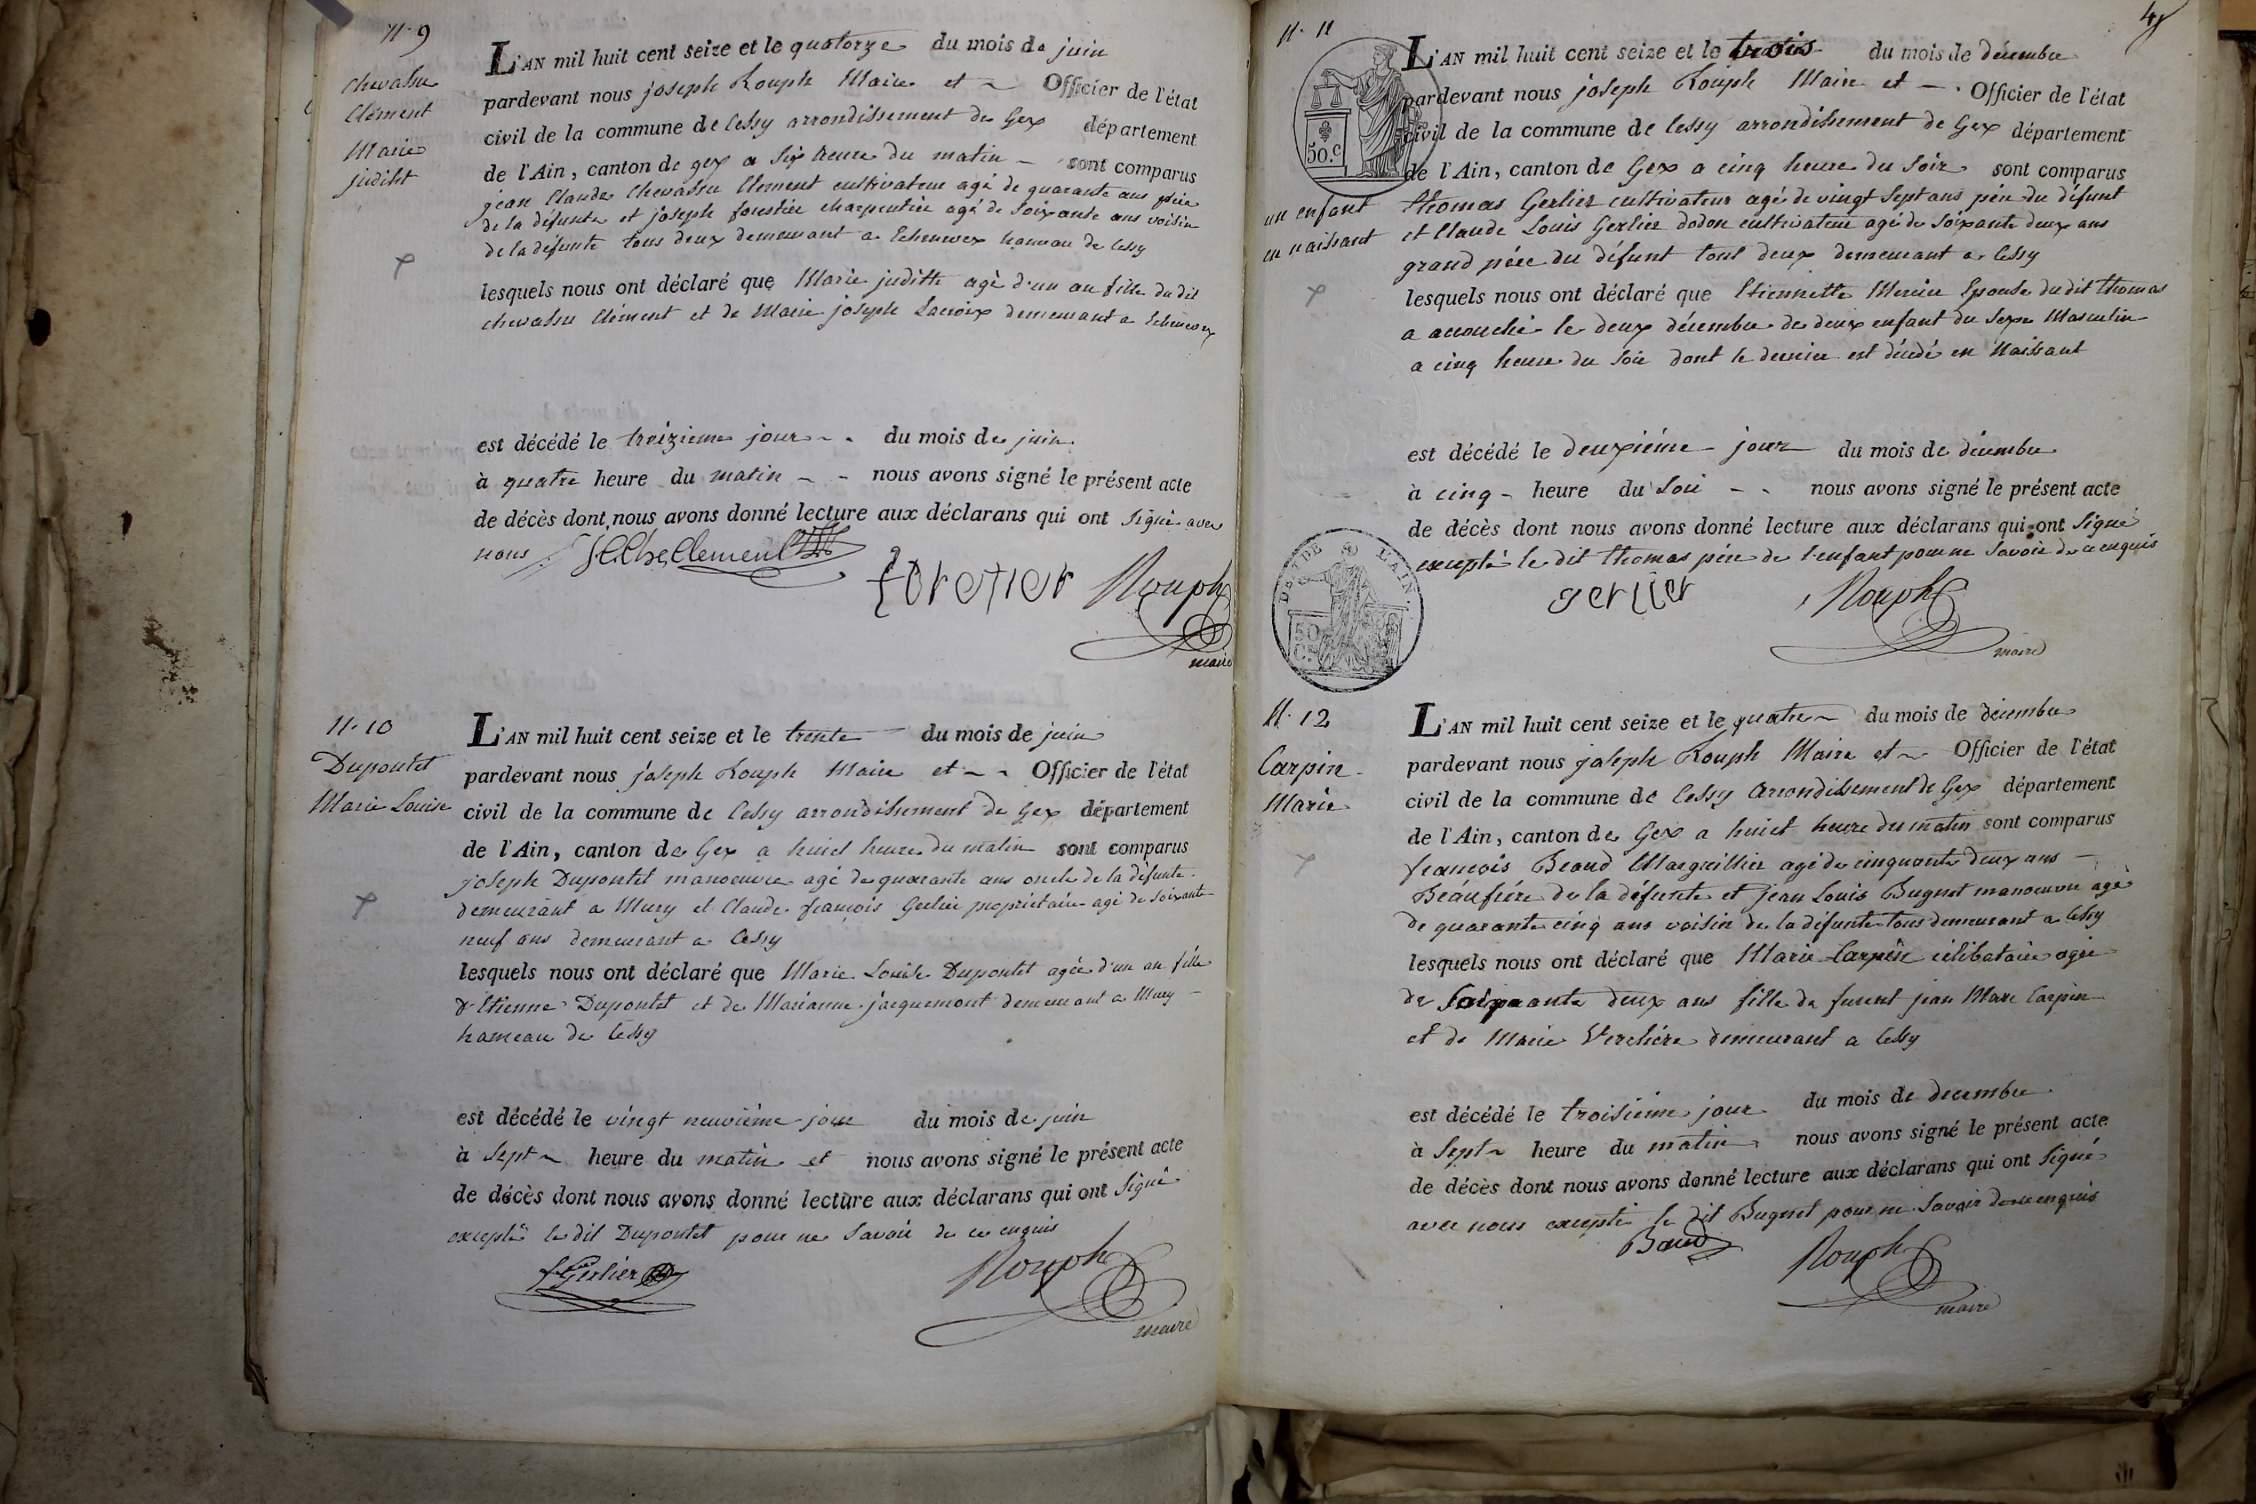 N. 9
Chevassu
Clément
Marie
Judith
L'AN mil huit cent seize et le quatorze du mois de juin
pardevant nous joseph Rouph Maire et Officier de l'état
civil de la commune de Cessy arrondissement de Gex département
de l'Ain, canton de gex a Six heure du matin sont comparus
jean Claude Chevassu Clement cultivateur agé de quarante ans père
de la défunte et joseph forestier charpentier agé de Soixante ans voisin
de la défunte tous deux demeurant a Echenevex hameau de Cessy
lesquels nous ont déclaré que Marie judith agé d'un an fille du dit
chevassu Clément et de Marie joseph Lacroix demeurant a Echenevex
est décédé le treizieme jour du mois de juin
à quatre heure du matin nous avons signé le présent acte
de décès dont nous avons donné lecture aux déclarans qui ont Signé avec
nous
foretier Rouph
maire
N. 10
Dupontet
Marie Louise
L'AN mil huit cent seize et le trente du mois de juin
pardevant nous joseph Rouph Maire et Officier de l'état
civil de la commune de Cessy arrondissement de Gex département
de l'Ain, canton de Gex a huict heure du matin sont comparus
joseph Dupontet manoeuvre agé de quarante ans oncle de la défunte
demeurant a Mury et Claude françois Gerlier propriétaire agé de Soixante
neuf ans demeurant a Cessy
lesquels nous ont déclaré que Marie Louise Dupontet agée d'un an fille
d'Etienne Dupontet et de Marianne jacquemont demeurant a Mury
hameau de Cessy
est décédé le vingt neuvième jour du mois de juin
à Sept heure du matin et nous avons signé le présent acte
de décès dont nous avons donné lecture aux déclarans qui ont Signé
excepté le dit Dupontet pour ne Savoir de ce enquis
f Gerlier Rouph
maire
48
N. 11
50.c
un enfant
en naissant
L'AN mil huit cent seize et le trois du mois de décembre
pardevant nous joseph Rouph Maire et Officier de l'état
civil de la commune de Cessy arrondissement de Gex département
de l'Ain, canton de Gex a cinq heure du Soir sont comparus
thomas Gerlier cultivateur agé de vingt Sept ans père du défunt
et Claude Louis Gerlier dodon cultivateur agé de Soixante deux ans
grand père du défunt tout deux demeurant a Cessy
lesquels nous ont déclaré que Etiennette Mercier Epouse du dit thomas
a accouché le deux décembre de deux enfant du Sexe Masculin
a cinq heure du Soir dont le dernier est décédé en Naissant
est décédé le deuxiéme jour du mois de décembre
à cinq heure du Soir nous avons signé le présent acte
de décès dont nous avons donné lecture aux déclarans qui ont Signé
excepté le dit thomas père de l'enfant pour ne Savoir de ce enquis
DPT DE L'AIN.
50 CS
gerlier Rouph
maire
N. 12
Carpin
Marie
L'AN mil huit cent seize et le quatre du mois de décembre
pardevant nous joseph Rouph Maire et Officier de l'état
civil de la commune de Cessy Arrondissement de Gex département
de l'Ain, canton de Gex a huict heure du matin sont comparus
françois Beaud Marguillier agé de cinquante deux ans
Beaufrére de la défunte et jean Louis Bugnet manoeuvre agé
de quarante cinq ans voisin de la défunte tous demeurant a Cessy
lesquels nous ont déclaré que Marie Carpin célibataire agée
de Soixante deux ans fille de furent jean Marc Carpin
et de Marie Verchére demeurant a Cessy
est décédé le troisième jour du mois de decembre
à Sept heure du matin nous avons signé le présent acte
de décès dont nous avons donné lecture aux déclarans qui ont Signé
avec nous excepté le dit Bugnet pour ne Savoir de ce enquis
Baud Rouph
maire